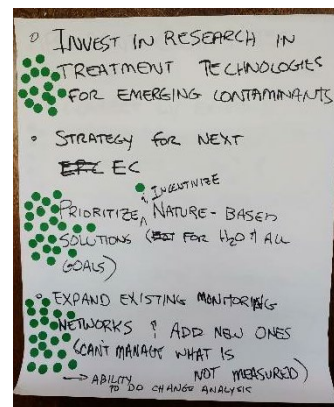 INVEST IN RESEARCH IN
TREATMENT TECHNOLOGIES
FOR EMERGING CONTAMINANTS
• STRATEGY FOR NEXT
EC
& INCENTIVIZE
PRIORITIZE ^ NATURE-BASED
SOLUTIONS (FOR H2O & ALL
GOALS)
• EXPAND EXISTING MONITORING
NETWORKS & ADD NEW ONES
(CANT MANAGE WHAT IS
NOT MEASURED)
→ ABILITY
TO DO CHANGE ANALYSIS